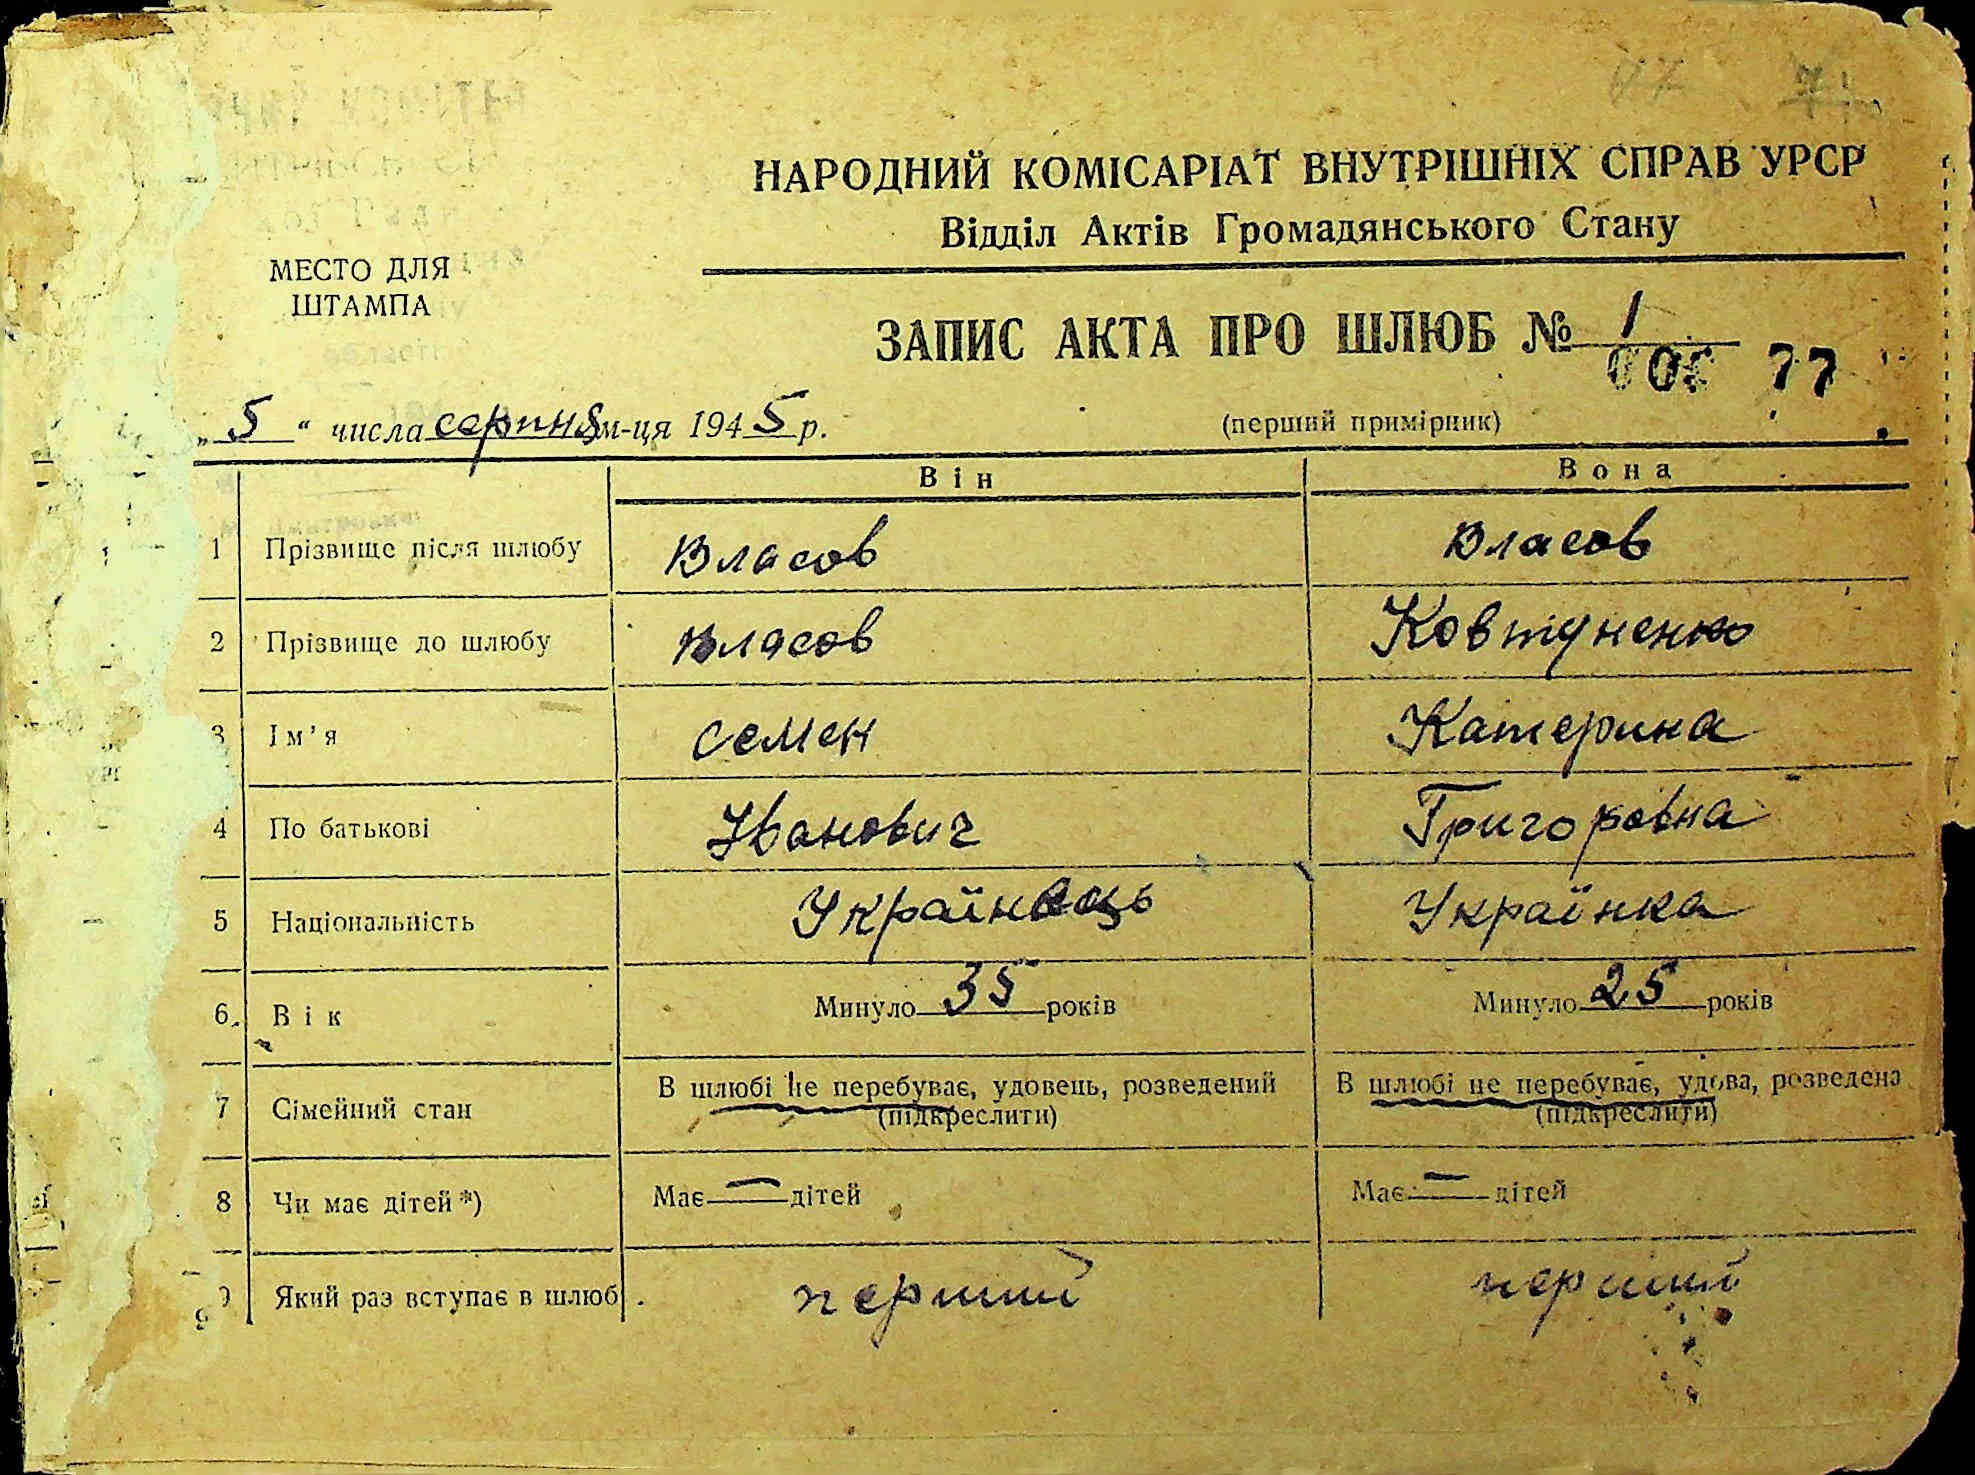 НАРОДНИЙ КОМІСАРІАТ ВНУТРІШНІХ СПРАВ УРСР
Відділ Актів Громадянського Стану
МЕСТО ДЛЯ
ШТАМПА
ЗАПИС АКТА ПРО ШЛЮБ № 1
77
„5“ числа серпня м-ця 1945 р.
(перший примірник)
Він Вона
1 Прізвище після шлюбу Власов Власов
2 Прізвище до шлюбу Власов Ковтуненко
3 Ім’я Семен Катерина
4 По батькові Іванович Григоровна
5 Національність Українець Українка
6. Вік Минуло 35 років Минуло 25 років
7 Сімейний стан В шлюбі не перебуває, удовець, розведений В шлюбі не перебуває, удова, розведена
(підкреслити) (підкреслити)
8 Чи має дітей *) Має — дітей Має — дітей
9 Який раз вступає в шлюб перший перший